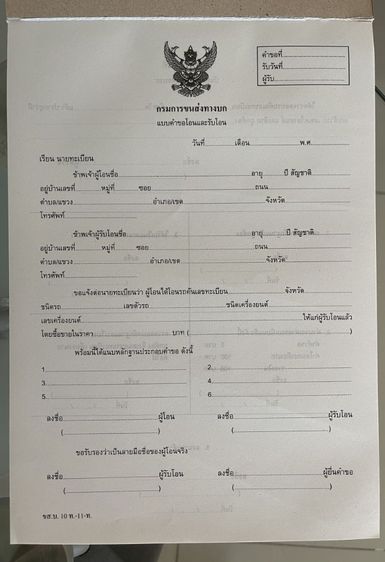 คำขอที่
รับวันที่
ผู้รับ
กรมการขนส่งทางบก
แบบคำขอโอนและรับโอน
วันที่ เดือน พ.ศ.
เรียน นายทะเบียน
ข้าพเจ้าผู้โอนชื่อ อายุ ปี สัญชาติ
อยู่บ้านเลขที่ หมู่ที่ ซอย ถนน
ตำบล/แขวง อำเภอ/เขต จังหวัด
โทรศัพท์
ข้าพเจ้าผู้รับโอนชื่อ อายุ ปี สัญชาติ
อยู่บ้านเลขที่ หมู่ที่ ซอย ถนน
ตำบล/แขวง อำเภอ/เขต จังหวัด
โทรศัพท์
ขอแจ้งต่อนายทะเบียนว่า ผู้โอนได้โอนรถคันเลขทะเบียน จังหวัด
ชนิดรถ เลขตัวรถ ชนิดเครื่องยนต์
เลขเครื่องยนต์ ให้แก่ผู้รับโอนแล้ว
โดยซื้อขายในราคา บาท ( )
พร้อมนี้ได้แนบหลักฐานประกอบคำขอ ดังนี้
1. 2.
3. 4.
5. 6.
ลงชื่อ ผู้โอน ลงชื่อ ผู้รับโอน
( ) ( )
ขอรับรองว่าเป็นลายมือชื่อของผู้โอนจริง
ลงชื่อ ผู้รับโอน ลงชื่อ ผู้ยื่นคำขอ
( ) ( )
ขส.บ. 10 ท.-11-ท.